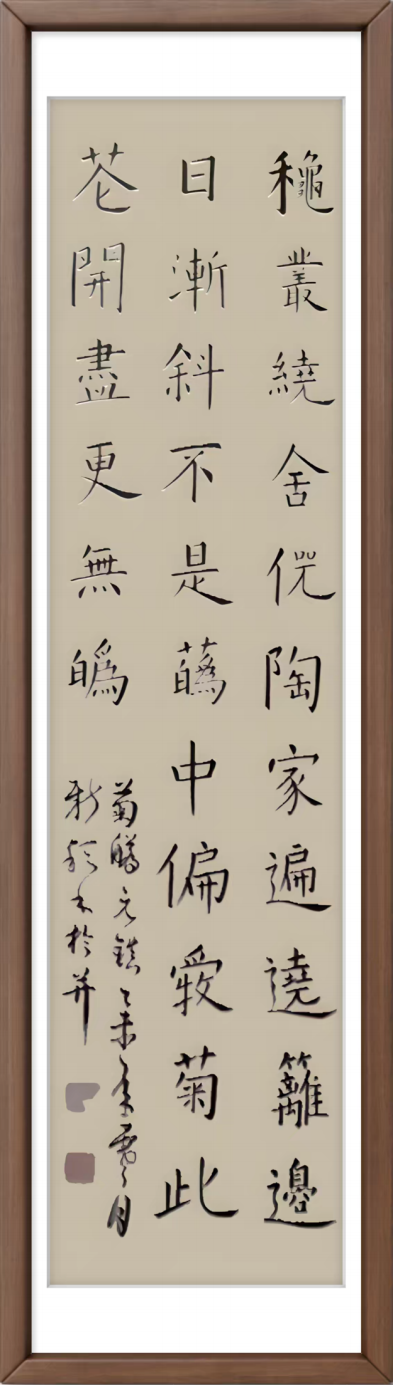 龝叢繞舍陶家遍遶籬邊
日漸斜不是蘤中偏愛菊此
花開盡更無
菊元稹乙未年月
書於并